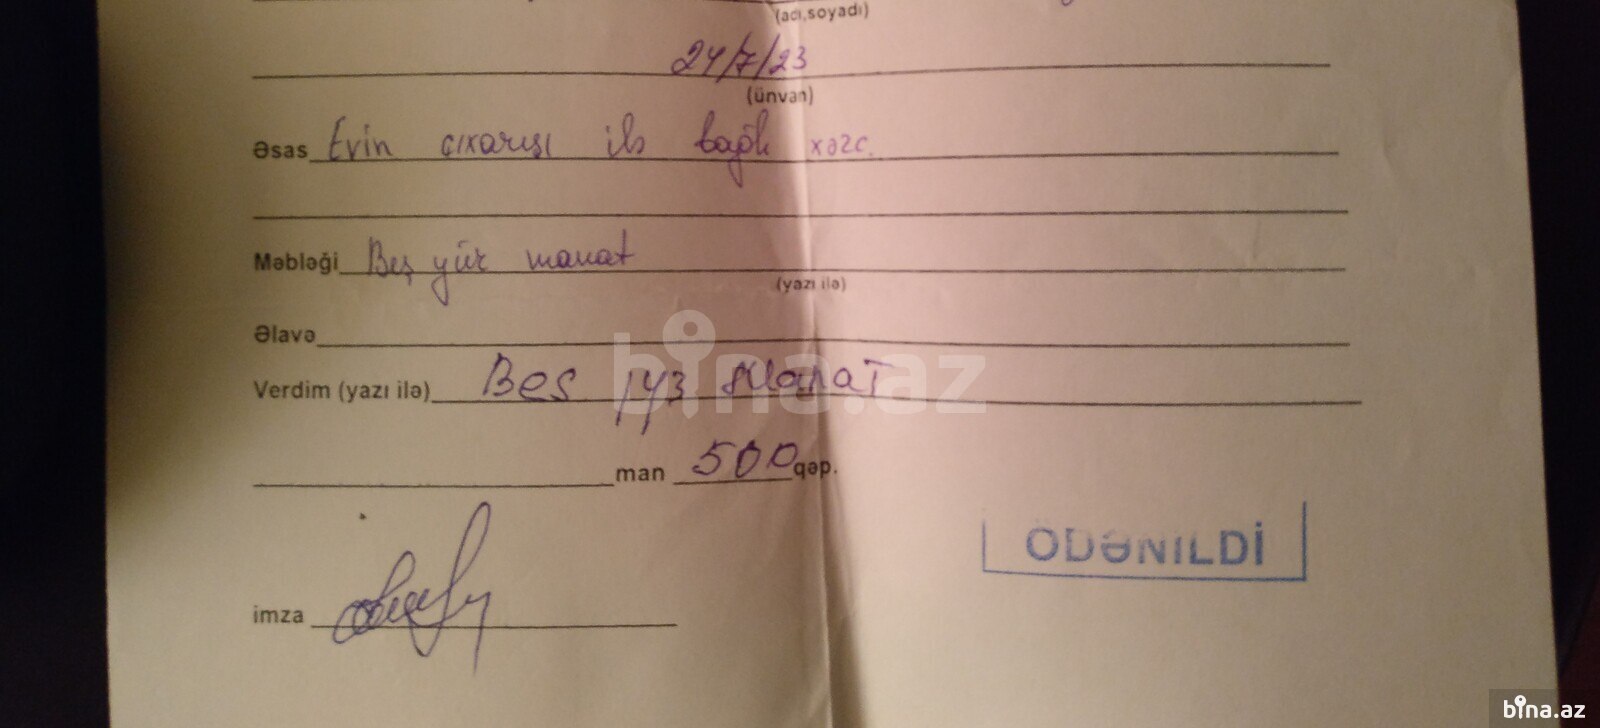 (adı,soyadı)
24/7/23
(ünvan)
Əsas Evin çıxarışı ilə bağlı xərc.
Məbləği Beş yüz manat
(yazı ilə)
Əlavə
bina.az
Verdim (yazı ilə) Bes yuz Manat
man 500 qəp.
ÖDƏNİLDİ
imza
bina.az